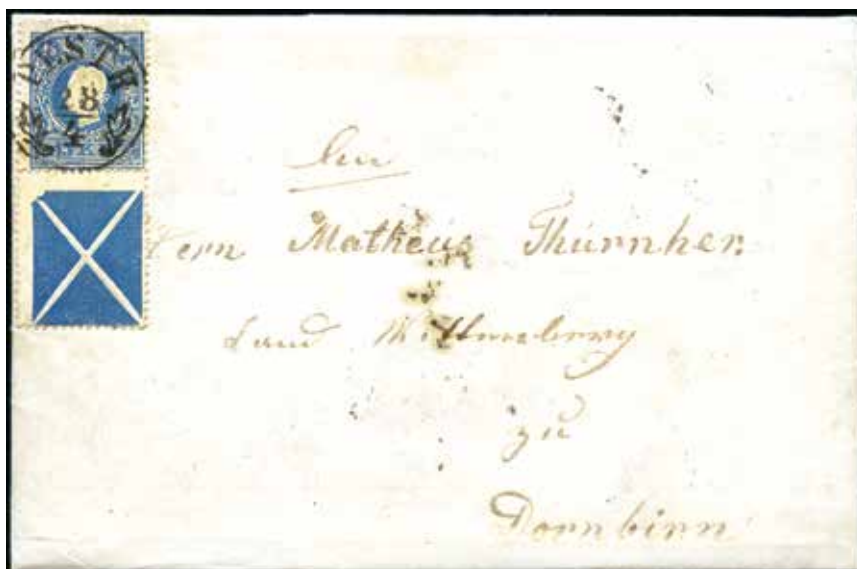 PESTH
28
4
An
Herrn Matheus Thurnher
zu
Dornbirn